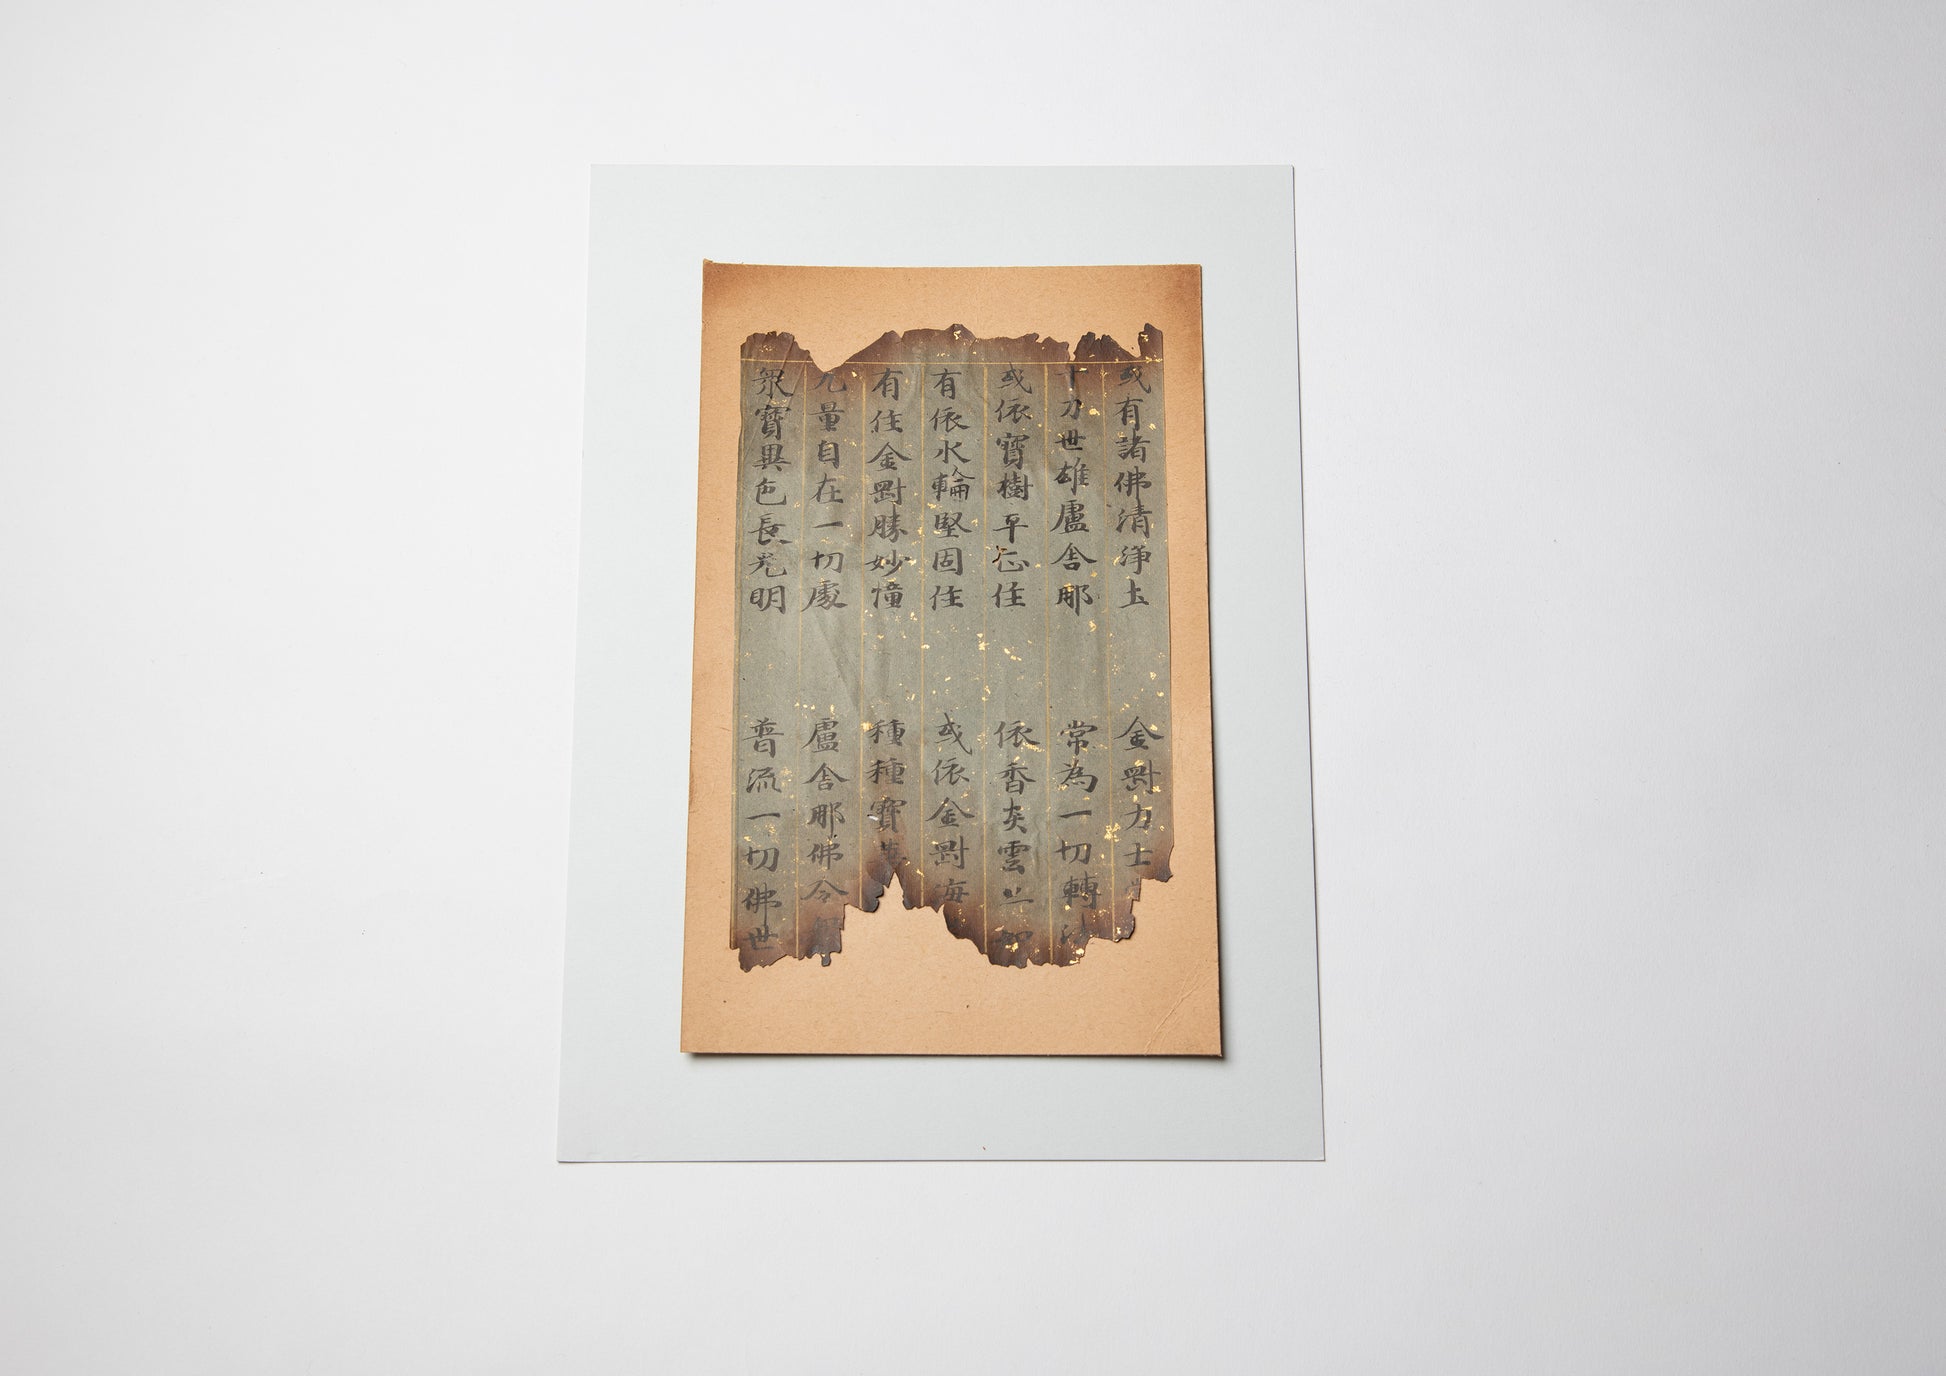 或有諸佛清淨土　金剛力士
十方世雄盧舍那　常為一切轉法
或依寶樹平正住　依香炎雲亦如
有依水輪堅固住　或依金剛海
有住金剛勝妙幢　種種寶
无量自在一切處　盧舍那佛令
眾寶異色長光明　普流一切佛世